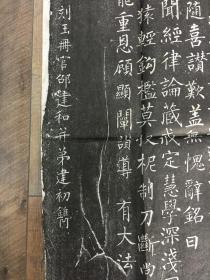 随喜讚歎盖無愧辭銘曰
聞經律論藏戒定慧學深淺
猿輕鉤檻莫收柅制刀斷尚
能重恩顧顯闡讚導有大法
刻玉冊官邵建和并弟建初鐫